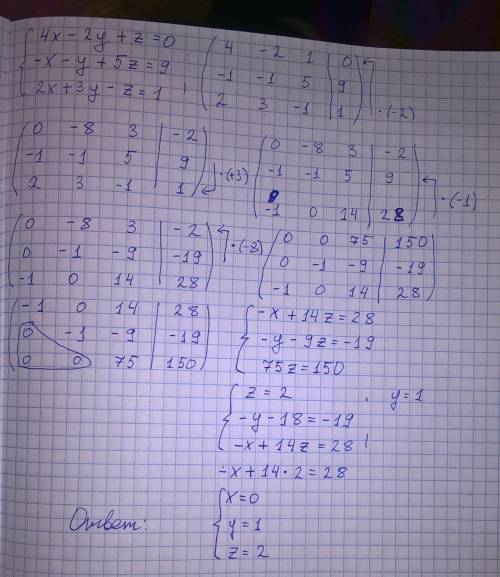 4x - 2y + z = 0
-x - y + 5z = 9
2x + 3y - z = 1 ,
4 -2 1 | 0
-1 -1 5 | 9
2 3 -1 | 1 · (-2)
0 -8 3 | -2
-1 -1 5 | 9
2 3 -1 | 1 · (+3)
0 -8 3 | -2
-1 -1 5 | 9
-1 0 14 | 28 · (-1)
0 -8 3 | -2
0 -1 -9 | -19
-1 0 14 | 28 · (-8)
0 0 75 | 150
0 -1 -9 | -19
-1 0 14 | 28
-1 0 14 | 28
0 -1 -9 | -19
0 0 75 | 150
-x + 14z = 28
-y - 9z = -19
75z = 150
z = 2 y = 1
-y - 18 = -19
-x + 14z = 28
-x + 14 · 2 = 28
Ответ:
x = 0
y = 1
z = 2